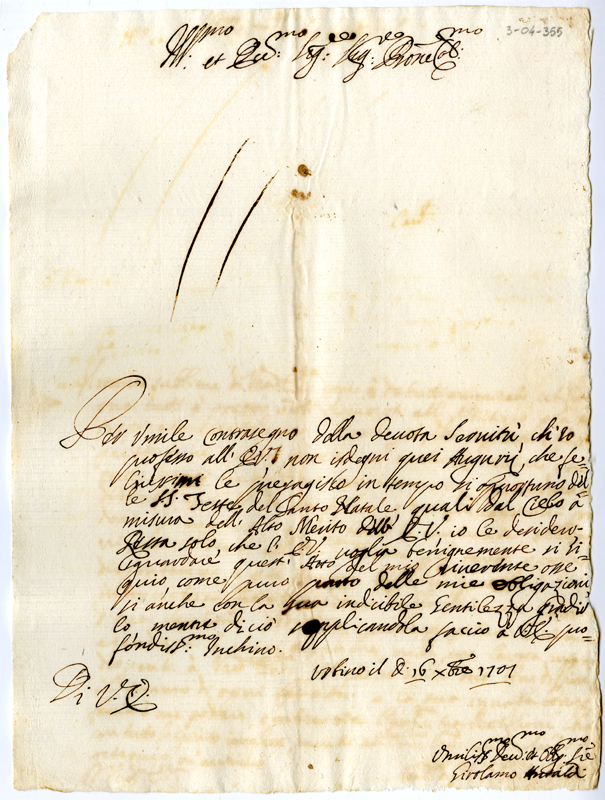 3-04-355
Ill.mo et Re.mo Sig.r Sig.r Prone Col.mo
Per umile contrasegno della devota Servitù, ch'io
professo all' E.V. non isdegni quei Augurij, che fe-
licissimi le presagisco in tempo sì opportuno del
le SS. Feste del Santo Natale quali dal Cielo à
misura dell' Alto Merito dell' E.V. io le desidero.
Resta solo che l' E.V. voglia benignamente sì ri-
guardare quest' Atto del mio riverente osse
quio come puro parto delle mie obligazioni
sì anche con la sua indicibile Gentilezza
lo di ciò supplicandola faccio à V.E. pro-
fondiss.mo Inchino.
Urbino il dì 16 Xbre 1701
Di V.E.
Umiliss.mo Dev.mo et Obl.mo Sre
Girolamo